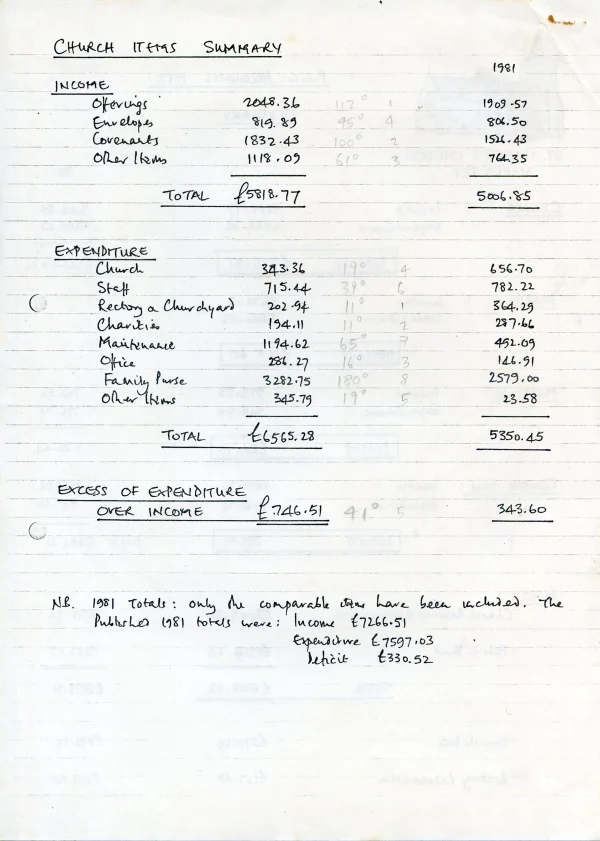 CHURCH ITEMS SUMMARY
1981
INCOME
Offerings 2048.36 112° 1 1909.57
Envelopes 819.89 45° 4 806.50
Covenants 1832.43 100° 2 1526.43
Other Items 1118.09 61° 3 764.35
TOTAL £5818.77 5006.85
EXPENDITURE
Church 343.36 19° 4 656.70
Staff 715.44 39° 6 782.22
Rectory & Churchyard 202.94 11° 1 364.29
Charities 194.11 11° 2 287.66
Maintenance 1194.62 65° 7 492.09
Office 286.27 16° 3 146.91
Family Purse 3282.75 180° 8 2579.00
Other Items 345.79 19° 5 23.58
TOTAL £6565.28 5350.45
EXCESS OF EXPENDITURE
OVER INCOME £746.51 41° 5 343.60
NB. 1981 Totals: only the comparable items have been included. The
Published 1981 totals were: Income £7266.51
Expenditure £7597.03
Deficit £330.52